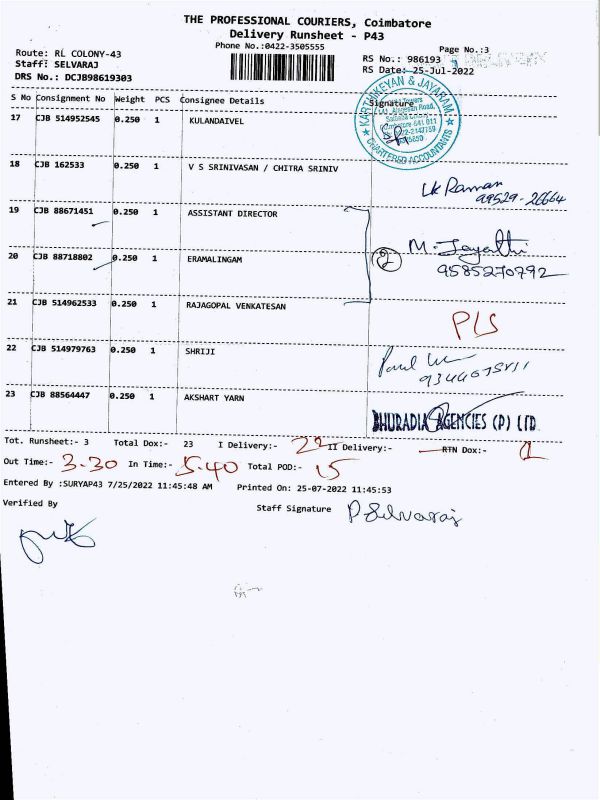 THE PROFESSIONAL COURIERS, Coimbatore
Delivery Runsheet - P43
Phone No.:0422-3505555
Page No.:3
Route: RL COLONY-43
RS No.: 986193
DELIVERY
Staff: SELVARAJ
RS Date: 25-Jul-2022
DRS No.: DCJB98619303
S No Consignment No Weight PCS Consignee Details Signature
KARTHIKEYAN & JAYARAM
CHARTERED ACCOUNTANTS
17 CJB 514952545 0.250 1 KULANDAIVEL
18 CJB 162533 0.250 1 V S SRINIVASAN / CHITRA SRINIV
Raman
99529-26664
19 CJB 88671451 0.250 1 ASSISTANT DIRECTOR
20 CJB 88718802 0.250 1 ERAMALINGAM
2 M. Jayanthi
9585270792
21 CJB 514962533 0.250 1 RAJAGOPAL VENKATESAN
P/S
22 CJB 514979763 0.250 1 SHRIJI
23 CJB 88564447 0.250 1 AKSHART YARN
BHURADIA AGENCIES (P) LTD
Tot. Runsheet:- 3 Total Dox:- 23 I Delivery:- 22 II Delivery:- RTN Dox:- 1
Out Time:- 3.30 In Time:- 5.40 Total POD:- 15
Entered By :SURYAP43 7/25/2022 11:45:48 AM Printed On: 25-07-2022 11:45:53
Verified By
Staff Signature P. Selvaraj